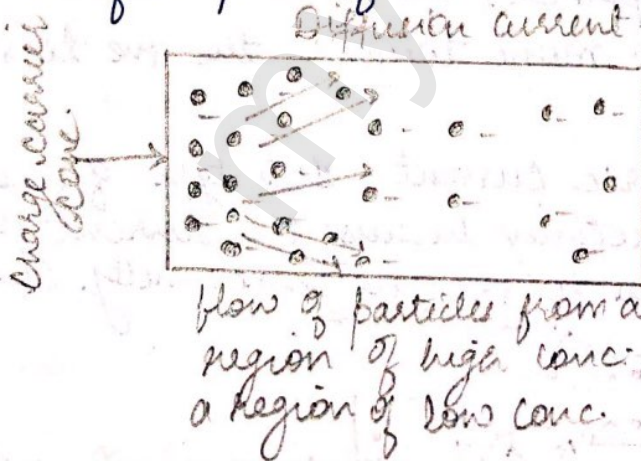 Diffusion current
Charge carrier
conc.
flow of particles from a
region of high conc.
a region of low conc.
my